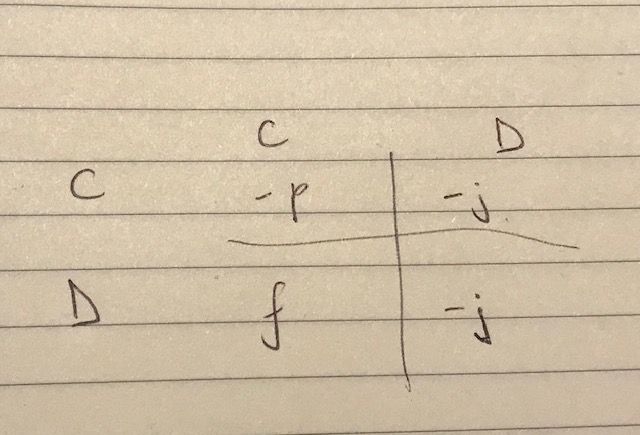 C D
C -p -j
D f -j